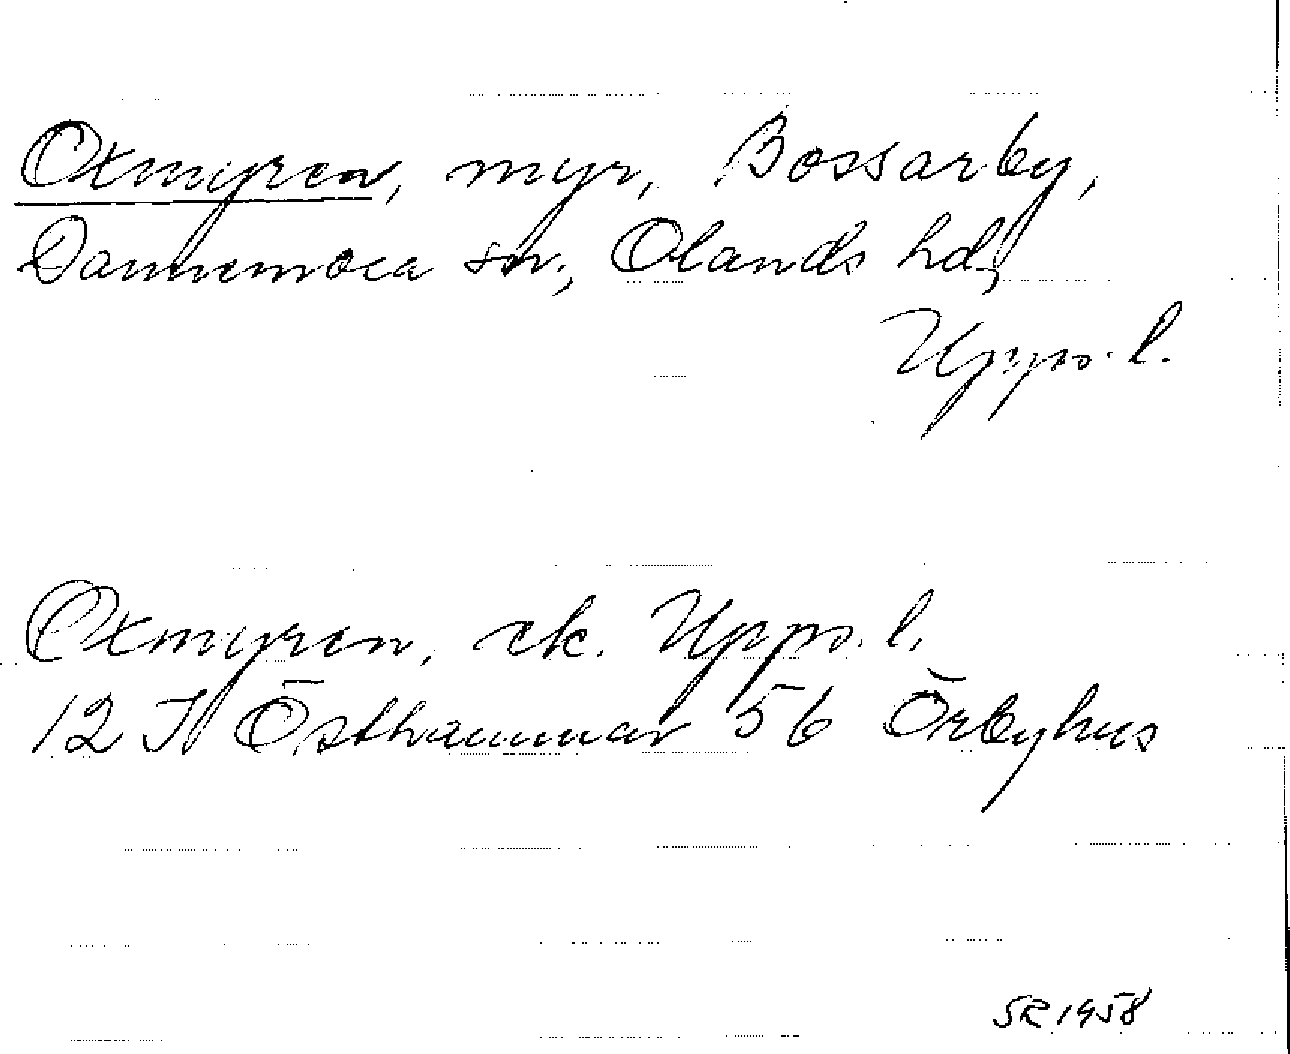 Oxmyren, myr, Bossarby,
Dannemora sn., Olands hd,
Upps. l.
Oxmyren, ek. Upps. l.
12 I Östhammar 56 Örbyhus
SR 1958